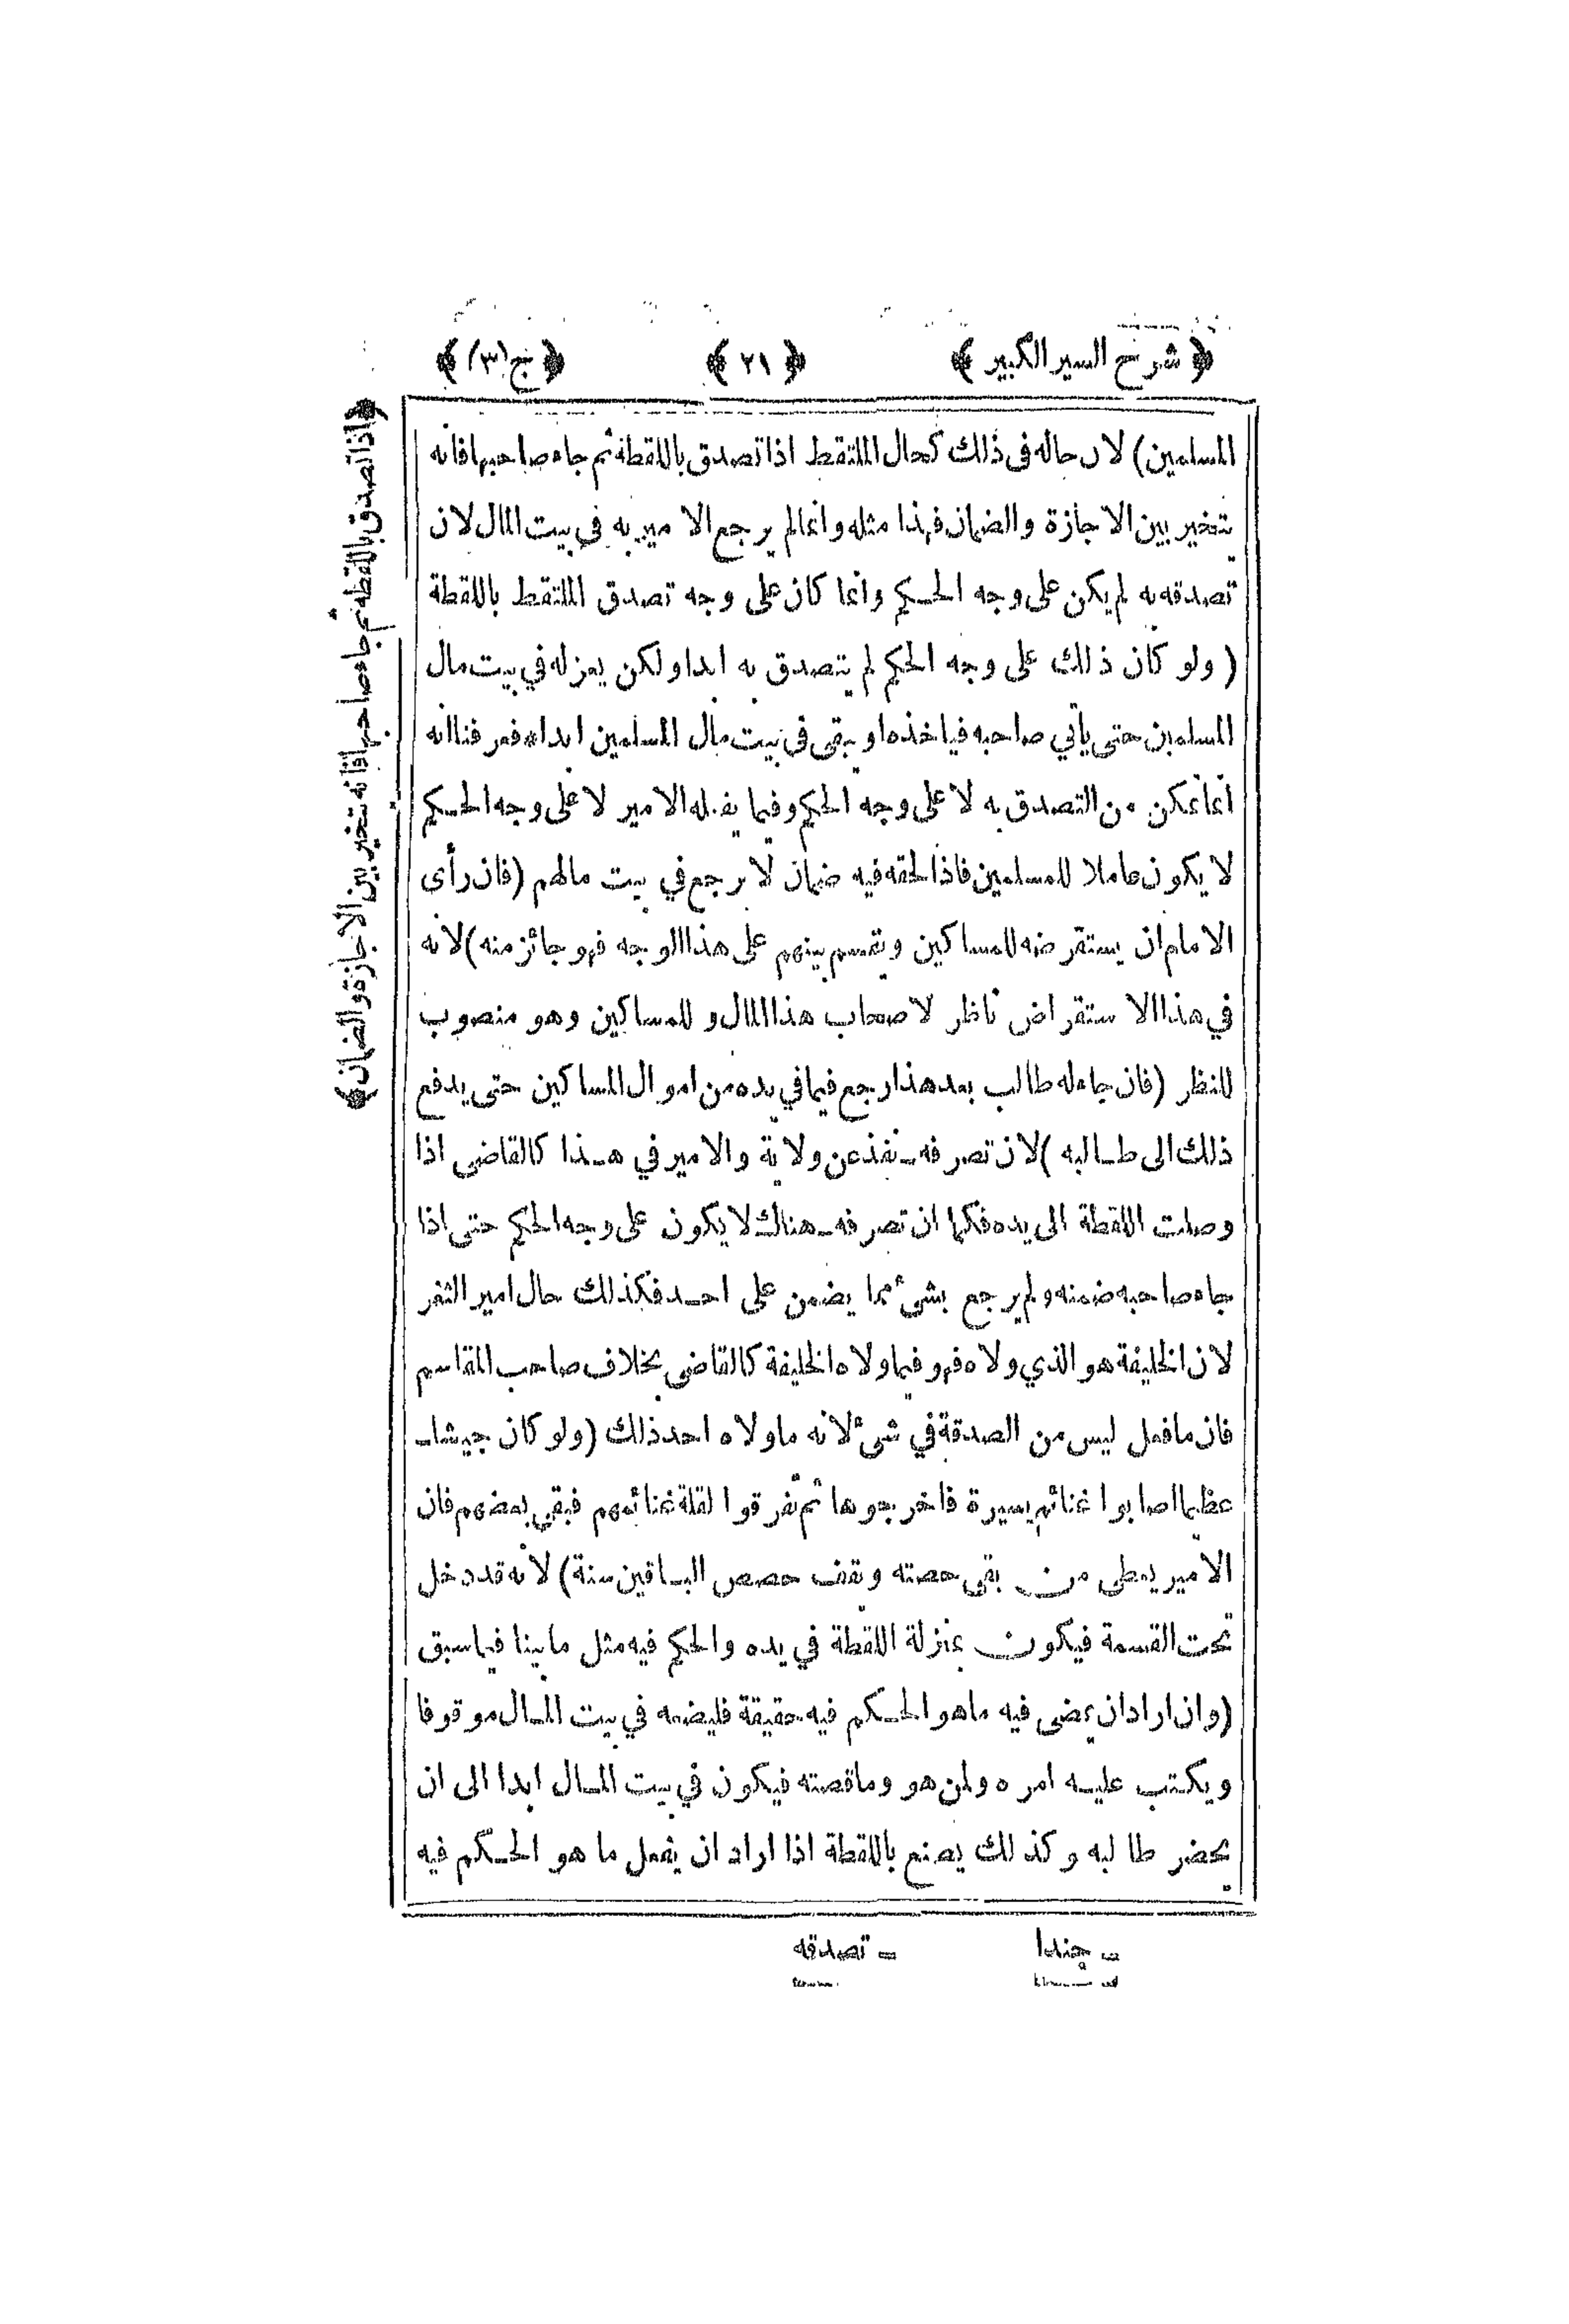 ﴿ شرح السير الكبير ﴾ ﴿ ٢١ ﴾ ﴿ ج (٣) ﴾
المسلمين) لان حاله فى ذلك كحال الملتقط اذا تصدق باللقطة ثم جاء صاحبها فانه
يتخير بين الاجازة والضمان فهذا مثله وانما لم يرجع الامير به في بيت المال لان
تصدقه به لم يكن على وجه الحكم وانما كان على وجه تصدق الملتقط باللقطة
(ولو كان ذلك على وجه الحكم لم يتصدق به ابدا ولكن يعزله في بيت مال
المسلمين حتى يأتي صاحبه فياخذه او يبقى فى بيت مال المسلمين ابدا) فعرفنا انه
انما تمكن من التصدق به لا على وجه الحكم وفيما يفعله الامير لا على وجه الحكم
لا يكون عاملا للمسلمين فاذا لحقه فيه ضمان لا يرجع في بيت مالهم (فان رأى
الامام ان يستقرضه للمساكين ويقسم بينهم على هذا الوجه فهو جائز منه) لانه
في هذا الاستقراض ناظر لاصحاب هذا المال وللمساكين وهو منصوب
للنظر (فان جاء له طالب بعد هذا رجع فيما في يده من اموال المساكين حتى يدفع
ذلك الى طالبه) لان تصرفه ـ نفذ عن ولاية والامير في هذا كالقاضى اذا
وصلت اللقطة الى يده فكما ان تصرفه ـ هناك لا يكون على وجه الحكم حتى اذا
جاء صاحبه ضمنه ولم يرجع بشئ مما يضمن على احد فكذلك حال امير الثغر
لان الخليفة هو الذي ولاه فهو فيما ولاه الخليفة كالقاضى بخلاف صاحب المقاسم
فان ما فعل ليس من الصدقة في شئ لانه ما ولاه احد ذلك (ولو كان جيشا ـ
عظيما اصابوا غنائم يسيرة فاخرجوها ثم تفرقوا لقلة غنائمهم فبقي بعضهم فان
الامير يعطى من بقى حصته ويقف حصص الباقين سنة) لانه قد دخل
تحت القسمة فيكون بمنزلة اللقطة في يده والحكم فيه مثل ما بينا فيما سبق
(وان اراد ان يمضى فيه ما هو الحكم فيه حقيقة فليضعه في بيت المال موقوفا
ويكتب عليه امره ولمن هو وما قصته فيكون في بيت المال ابدا الى ان
يحضر طالبه وكذلك يصنع باللقطة اذا اراد ان يفعل ما هو الحكم فيه
﴿ اذا تصدق باللقطه ثم جاء صاحبها فانه تتخير بين الاجازة والضمان ﴾
ـ جندا ـ تصدقه